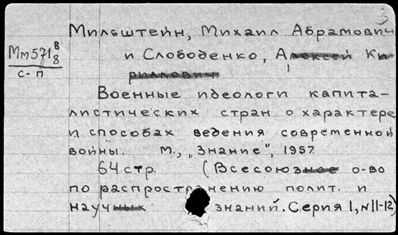 Мильштейн, Михаил Абрамович
Мм571 В/8
С-П
и Слободенко, Алексей Ки-
риллович
Военные идеологи капита-
листических стран о характере
и способах ведения современной
войны. М., „Знание", 1957.
64 стр. (Всесоюзное о-во
по распространению полит. и
научных знаний. Серия 1, №11-12)